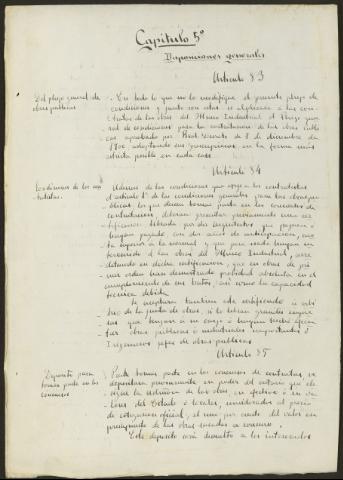 Capítulo 5º
Disposiciones generales
Artículo 83
Del pliego general de
obras públicas
En todo lo que no lo modifique el presente pliego de
condiciones y junto con este se aplicará a las con-
tratas de las obras del Museo Industrial el Pliego gene-
ral de condiciones para la contratación de las obras públi-
cas aprobado por Real Decreto de 8 de diciembre de
1900, adoptando sus prescripciones en la forma más
estricta posible en cada caso.
Artículo 84
Condiciones de los con-
tratistas.
Además de las condiciones que exige a los contratistas
el artículo 1º de las condiciones generales para las obras pú-
blicas, los que tomen parte en los concursos de
contratación, deberán presentar previamente un cer-
tificado librado por dos arquitectos que paguen o
tengan pagado con dos años de anticipación, cuo-
ta superior a la normal y que para nada tengan in-
tervención en las obras del Museo Industrial, acre-
ditando en dicho certificado, que en obras de pri-
mer orden han demostrado probidad absoluta en el
cumplimiento de sus tratos, así como la capacidad
técnica debida.
Se aceptará también este certificado a arbi-
trio de la junta de obras, si lo libran grandes empre-
sas que tengan a su cargo o hayan hecho ejecu-
tar obras públicas o industriales importantes o
Ingenieros jefes de obras públicas.
Artículo 85
Depósito para
tomar parte en los
concursos
Para tomar parte en los concursos de contratas se
depositará previamente en poder del notario que de-
signe la Dirección de las obras, en efectivo o en va-
lores del Estado o locales, considerados al precio
de cotización oficial, el uno por ciento del valor en
presupuesto de las obras sacadas a concurso.
Este depósito será devuelto a los interesados